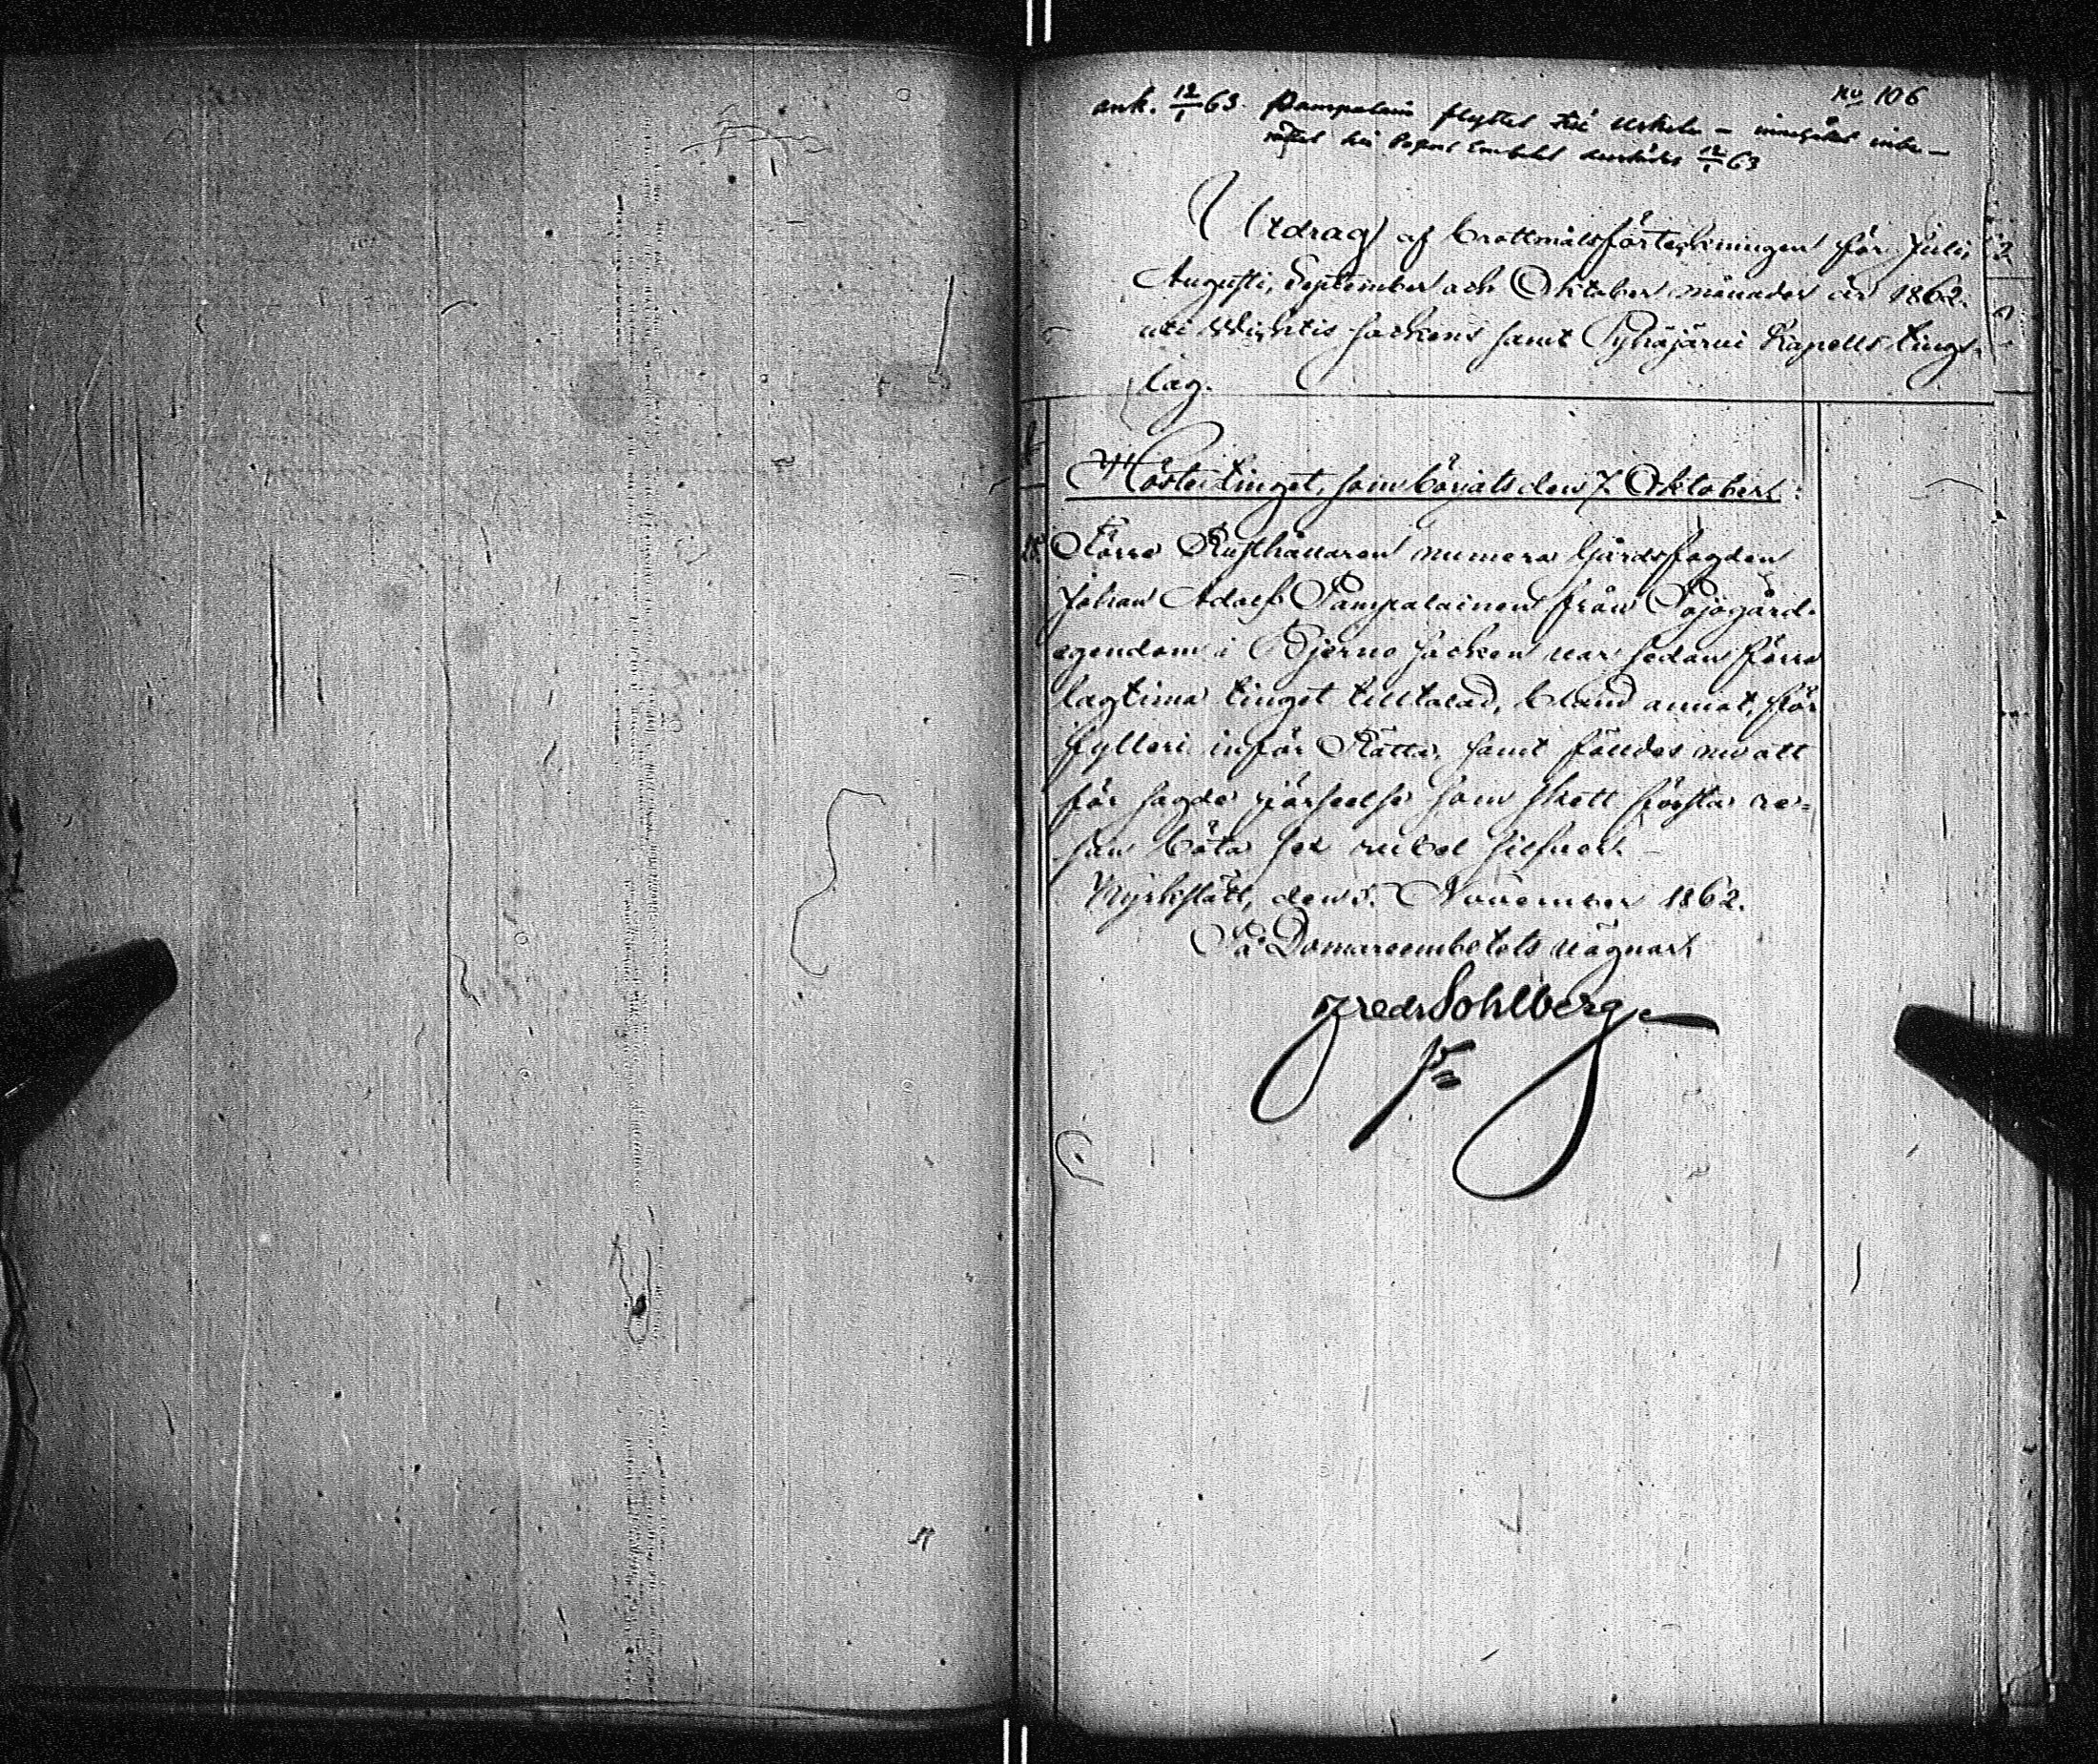 No 106
ank. 12/1 63. Pampalain flyttat till Uskela —
rättat hos Pastors Embetet derstädes 12/1 63
Utdrag af brottmålsförteckningen för Juli,
Augusti, September och Oktober månader år 1862.
uti Wichtis socken samt Pyhäjärvi Kapells tings-
lag.
Höstetinget, som börjats den 7 Oktober:
Förre Rusthållaren numera Gårdsfogden
Johan Adolf Pampalainen från Pojogård
egendom i Bjerno socken var sedan förra
lagtima tinget tilltalad, bland annat, för
fylleri inför Rätta, samt fälldes nu att
för sagde förseelse som skett första re-
san böta sex rubel silfver.
Kyrkslätt, den 5. November 1862.
På Domareembetets vägnar
Fredr Sohlberg